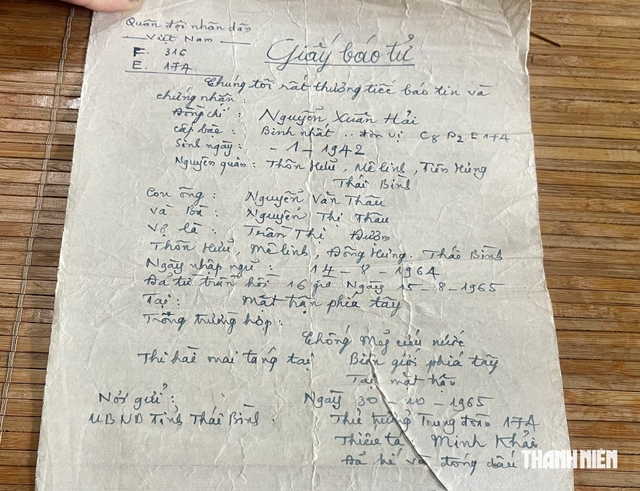 Quân đội nhân dân
Việt Nam
F. 316
E. 174
Giấy báo tử
Chúng tôi rất thương tiếc báo tin và
chứng nhận :
Đồng chí : Nguyễn Xuân Hải
Cấp bậc : Binh nhất .. đơn vị C8 D2 E174
Sinh ngày : - 1 - 1942
Nguyên quán : Thôn Hữu, Mê linh, Tiên Hưng
Thái Bình
Con ông : Nguyễn Văn Thâu
Và Bà : Nguyễn Thị Thâu
Vợ là : Trần Thị Đượm
Thôn Hữu, Mê linh, Đông Hưng. Thái Bình
Ngày nhập ngũ : 14 - 8 - 1964
Đã tử trận hồi 16 giờ Ngày 15 - 8 - 1965
Tại : Mặt trận phía tây
Trong trường hợp :
Chống Mỹ cứu nước
Thi hài mai táng tại Biên giới phía tây
Tại mặt trận
Nơi gửi : Ngày 30 - 10 - 1965
UBND Tỉnh Thái Bình : Thủ trưởng Trung đoàn 174
Thiếu tá Minh Khải
Đã ký và đóng dấu
THANH NIÊN